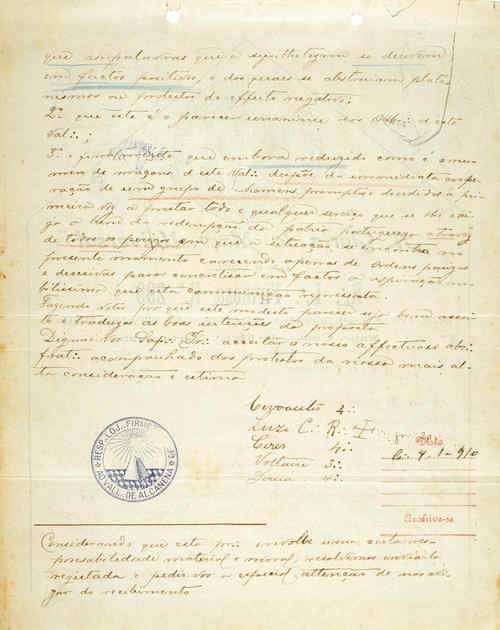 que as palavras que a synthetisem se devem
em factos positivos, e dos geraes se abstraiam plato
nismos ou protestos de effeito negativo;
2º que este é o parecer unanime dos Obr∴ d'este
Val∴;
3º e finalmente que embora reduzido como é o nu
mero de maçons d'este Val∴ dispõe da immediata coope
ração de um grupo de homens promptos e decididos á pri
meira voz a prestar todo e qualquer serviço que se lhe exi
ja a bem da redempção da patria portugueza atravez
de todos os perigos em que a situação se encontra no
presente momento carecendo apenas de ordens
e decisivas para concretisar em factos a aspiração no
bilissima que esta communicação representa.
Fazendo votos por que este modesto parecer seja bem acei
te e traduza as boas intenções da proposta
Dignae-vos Sap∴ Ir∴ acceitar o nosso affectuoso abr∴
frat∴ acompanhado dos protestos da nossa mais al
ta consideração e estima
4∴
Luz C∴ R∴
Ceres 4∴
Voltaire 3∴
4∴
RESP∴ LOJ∴ FIRME
AO VALL∴ DE ALCANENA
9-1-910
Archive-se
Considerando que esta pr∴ envolve uma certa res
ponsabilidade material e moral, resolvemos envial-a
registada e pedir-vos a especial attenção de nos avi
zar do recebimento